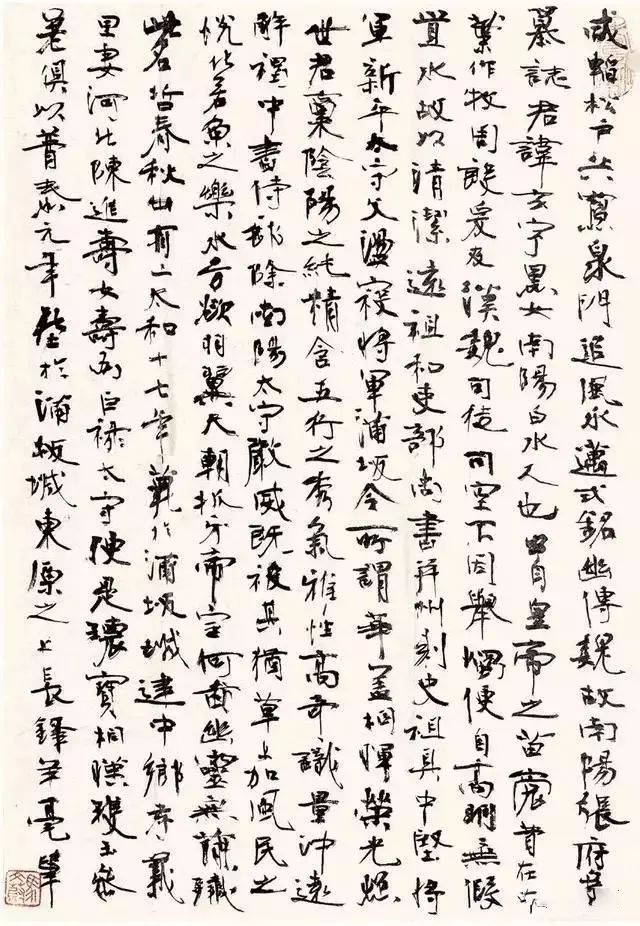 咸韜松户共寢泉門追風永邁式銘幽傳魏故南陽張府君
墓誌君諱玄字黑女南陽白水人也出自皇帝之苗裔昔在中
葉作牧周殷爰及漢魏司徒司空不因舉燭便自高明無假
置水故以清潔遠祖和吏部尚書并州刺史祖具中堅將
軍新平太守父盪寇將軍蒲坂令所謂華蓋相暉榮光照
世君稟陰陽之純精含五行之秀氣雅性高奇識量沖遠
解褐中書侍郎除南陽太守嚴威既被其猶草上加風民之
悅化若魚之樂水方欲羽翼天朝抓牙帝室何啚幽靈無殲
此名哲春秋卅有二太和十七年薨於蒲坂城建中鄉孝義
里妻河北陳進壽女壽為巨祿太守便是瓌寶相映瓊玉參
差俱以普泰元年塟於蒲坂城東原之上長鋒羊毫筆